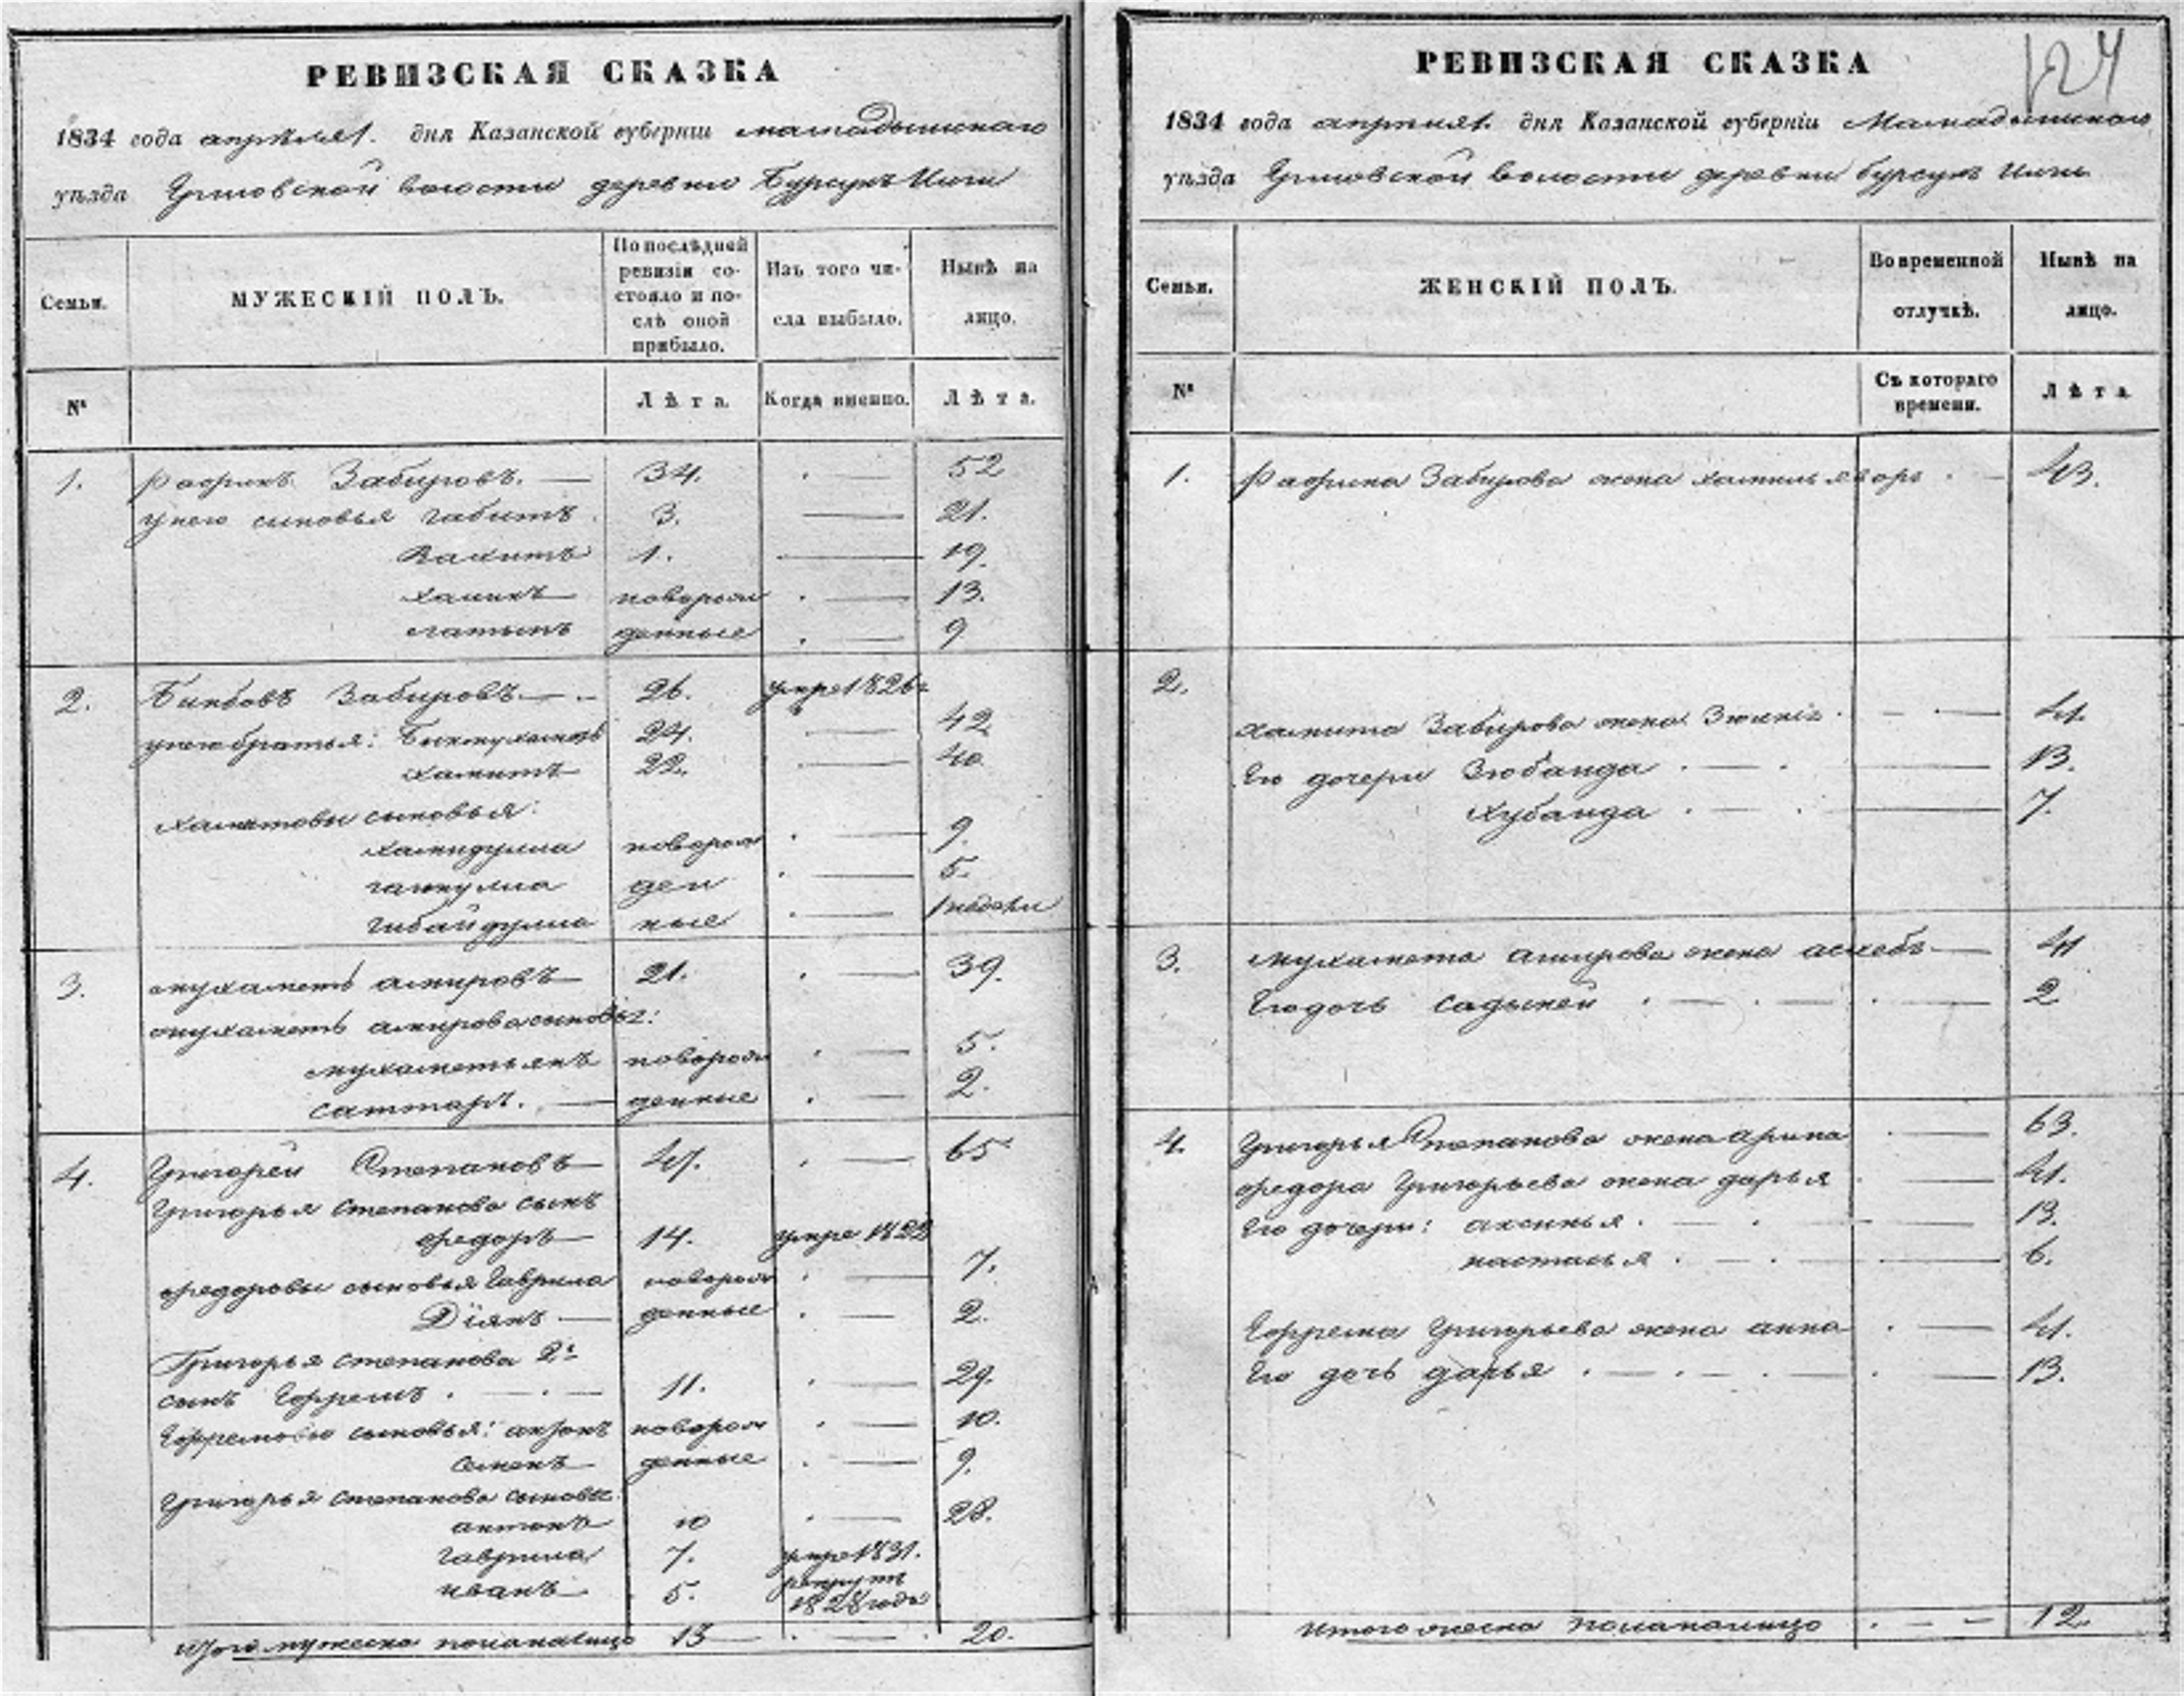 РЕВИЗСКАЯ СКАЗКА
1834 года апреля 1. дня Казанской губерніи мамадышскаго
уѣзда волости деревни Бурсукъ
Семьи.
МУЖЕСКІЙ ПОЛЪ.
По послѣдней ревизіи состояло и послѣ оной прибыло.
Изъ того числа выбыло.
Нынѣ на лицо.
№
Лѣта.
Когда именно.
Лѣта.
1. Рафикъ Забировъ. 34. 52
у него сыновья габитъ 3. 21.
Вахитъ 1. 19.
новорож 13.
денные 9
2. Забировъ 26. умре 1826г
у него братья: 24. 42
хамитъ 22. 40
хамитовы сыновья:
хамидулла новорож 9.
ден 5.
гибайдулла ные 1 недели
3. мухаметь амировъ 21. 39.
мухаметь амирова сыновья:
мухаметьянъ новорож 5.
саттаръ. денные 2.
4. Григорей Степановъ 47. 65
Григорья Степанова сынъ
федоръ 14. умре 1822
федоровы сыновья Гаврила новорож 7.
Діянъ денные 2.
Григорья степанова 2й
сынъ Ефремъ 11. 29.
Ефремовы сыновья: новорож 10.
семенъ денные 9.
Григорья Степанова сыновья
антонъ 10 28.
гаврила 7. умре 1831.
иванъ 5. рекрутъ
1828 года
Итого мужеска пола налицо 13 20.
124
РЕВИЗСКАЯ СКАЗКА
1834 года апреля 1. дня Казанской губерніи Мамадышскаго
уѣзда волости деревни бурсукъ
Семьи.
ЖЕНСКІЙ ПОЛЪ.
Во временной отлучкѣ.
Нынѣ на лицо.
№
Съ котораго времени.
Лѣта
1. Рафика Забирова жена 43.
2.
хамита Забирова жена 41.
Его дочери Зюбаида 13.
Хубаида 7.
3. мухамета амирова жена 41
Его дочь 2
4. Григорья Степанова жена арина 63.
федора Григорьева жена дарья 41.
Его дочери: аксинья 13.
настасья 6.
Ефрема Григорьева жена анна 41.
Его дочь дарья 13.
Итого женска пола налицо 12.